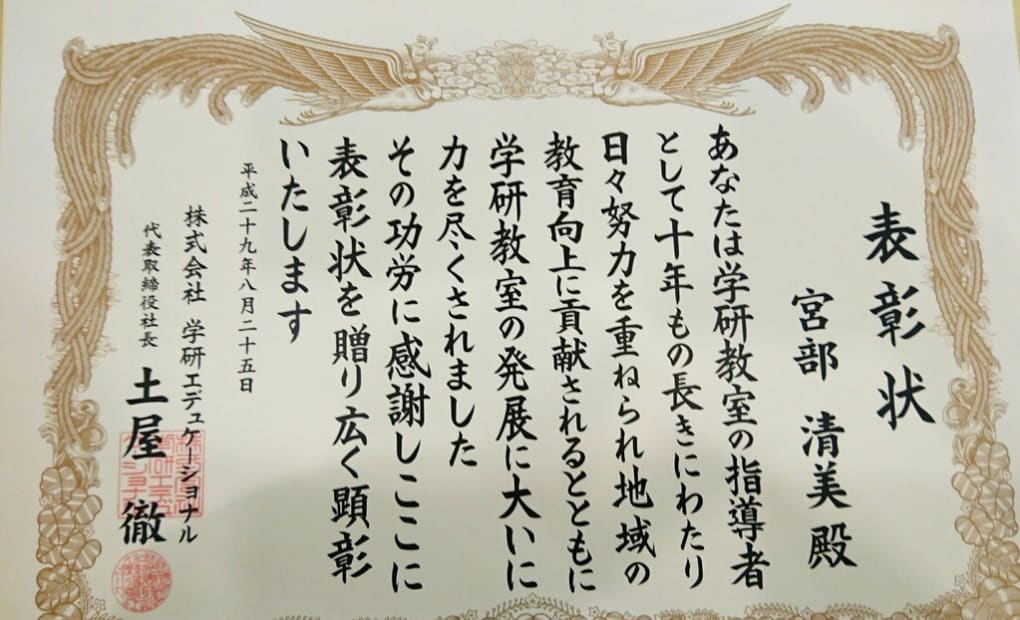 表彰状
宮部 清美殿
あなたは学研教室の指導者
として十年もの長きにわたり
日々努力を重ねられ地域の
教育向上に貢献されるとともに
学研教室の発展に大いに
力を尽くされました
その功労に感謝しここに
表彰状を贈り広く顕彰
いたします
平成二十九年八月二十五日
株式会社 学研エデュケーショナル
代表取締役社長 土屋 徹